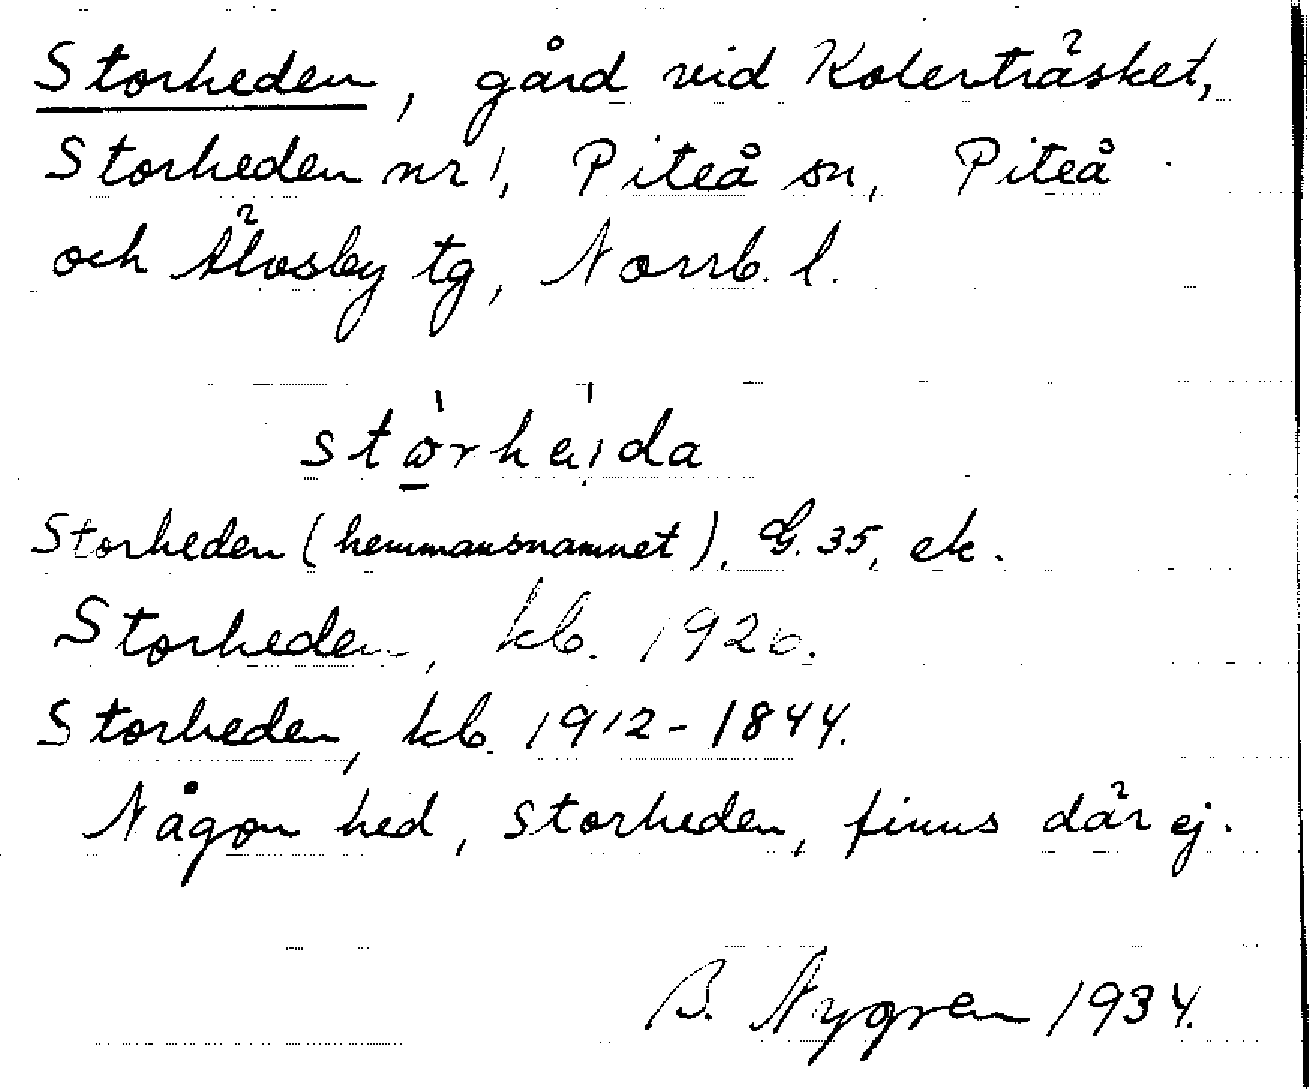 Storheden, gård vid Kolerträsket,
Storheden nr 1, Piteå sn, Piteå
och Älvsby tg, Norrb. l.
Storheden (hemmansnamnet), G. 35, ek.
Storheden, kb. 1920.
Storheden, kb. 1912-1844.
Någon hed, storheden, finns där ej.
B. Nygren 1934.